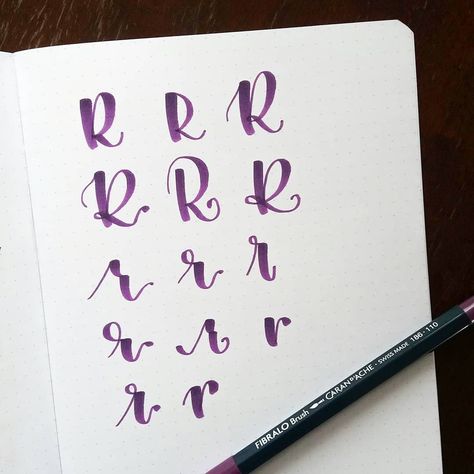 R R R
R R R
r r r
r r r
r r
FIBRALO Brush CARAN D'ACHE - SWISS MADE 186-110